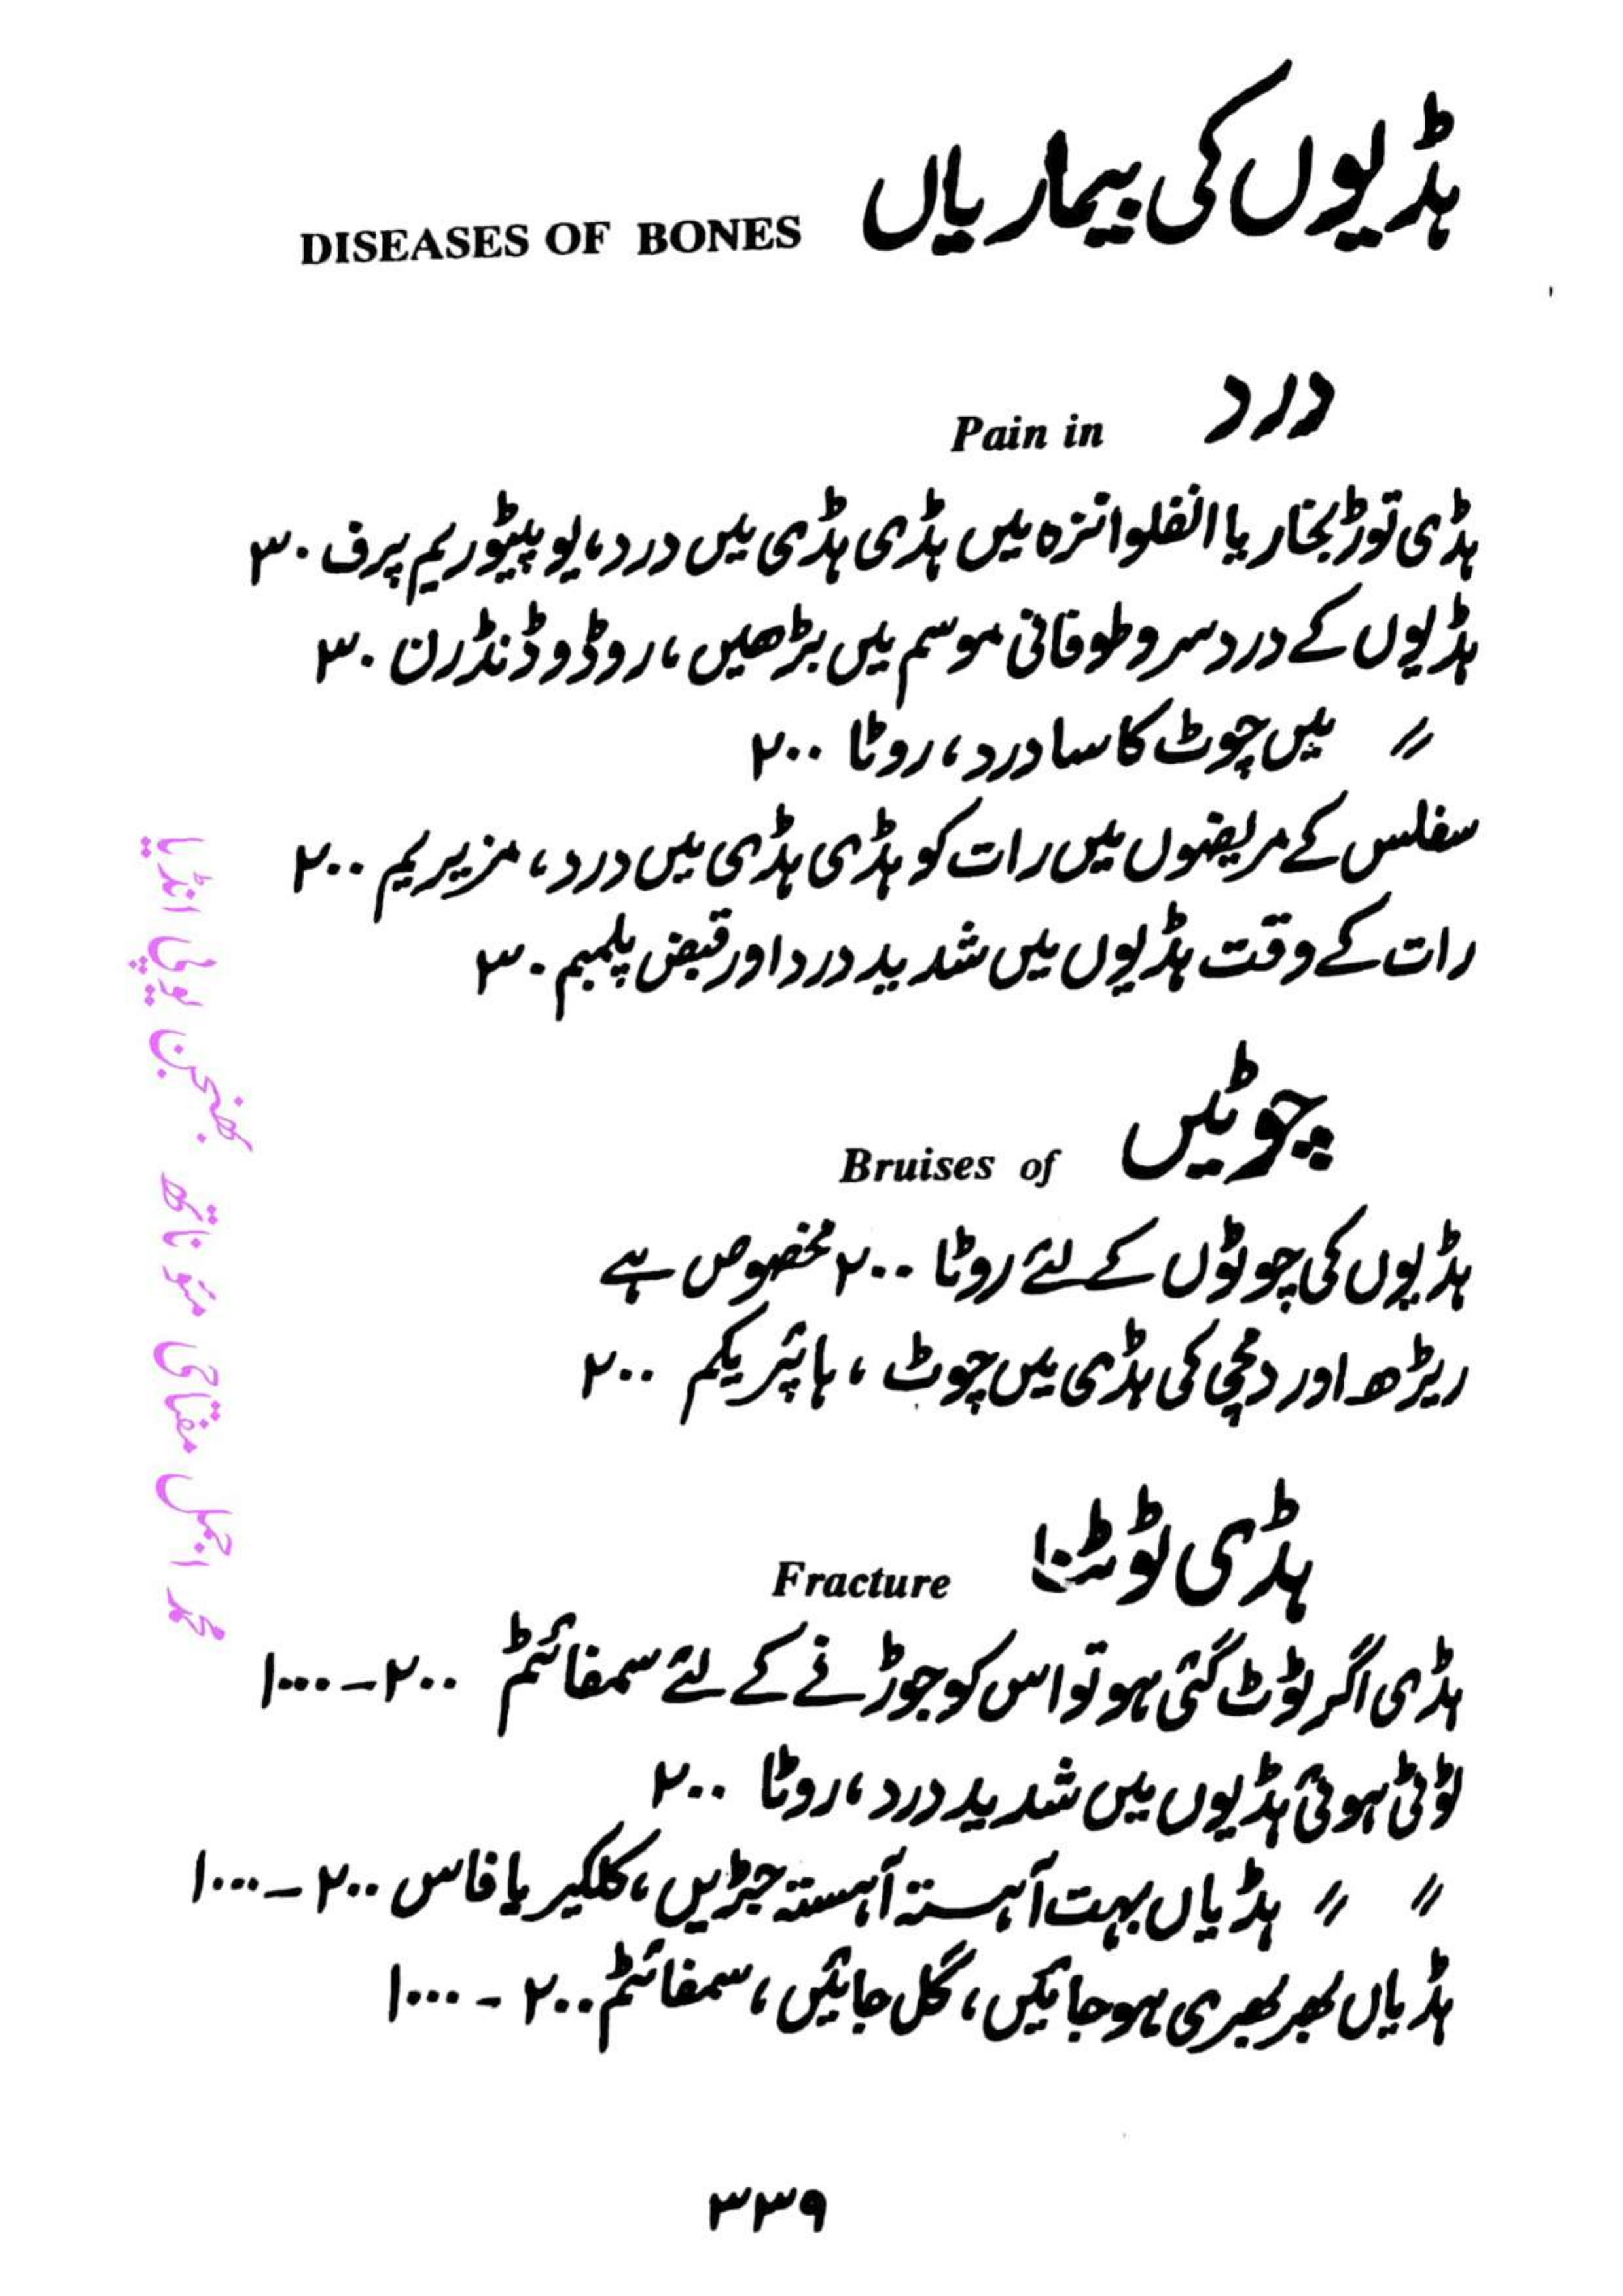 ہڈیوں کی بیماریاں DISEASES OF BONES
درد Pain in
ہڈی توڑ بخار یا انفلوائنزہ میں ہڈی ہڈی میں درد، یوپیٹوریم پرف ۳۰
ہڈیوں کے درد سرد طوفانی موسم میں بڑھیں، روڈوڈنڈرن ۳۰
〃 میں چوٹ کا سا درد، روٹا ۲۰۰
سفلس کے مریضوں میں رات کو ہڈی ہڈی میں درد، مزیریم ۲۰۰
رات کے وقت ہڈیوں میں شدید درد اور قبض پلمبم ۳۰
چوٹیں Bruises of
ہڈیوں کی چوٹوں کے لئے روٹا ۲۰۰ مخصوص ہے
ریڑھ اور دمچی کی ہڈی میں چوٹ، ہائپریکم ۲۰۰
ہڈی ٹوٹنا Fracture
ہڈی اگر ٹوٹ گئی ہو تو اس کو جوڑنے کے لئے سمفائٹم ۲۰۰ – ۱۰۰۰
ٹوٹی ہوئی ہڈیوں میں شدید درد، روٹا ۲۰۰
〃 〃 ہڈیاں بہت آہستہ آہستہ جڑیں، کلکیریا فاس ۲۰۰ – ۱۰۰۰
ہڈیاں بھربھری ہوجائیں، گل جائیں، سمفائٹم ۲۰۰ – ۱۰۰۰
۳۳۹
محمد اجمل مفتاحی مئو ناتھ بھنجن یوپی انڈیا